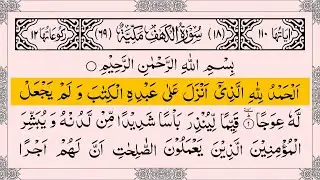 اٰیَاتُهَا ١١٠ (١٨) سُوْرَةُ الْكَهْفِ مَكِّیَّةٌ (٦٩) رُكُوْعَاتُهَا ١٢
بِسْمِ اللّٰهِ الرَّحْمٰنِ الرَّحِیْمِ
اَلْحَمْدُ لِلّٰهِ الَّذِیْۤ اَنْزَلَ عَلٰى عَبْدِهِ الْكِتٰبَ وَ لَمْ یَجْعَلْ
لَّهٗ عِوَجًا ١ قَیِّمًا لِّیُنْذِرَ بَاْسًا شَدِیْدًا مِّنْ لَّدُنْهُ وَ یُبَشِّرَ
الْمُؤْمِنِیْنَ الَّذِیْنَ یَعْمَلُوْنَ الصّٰلِحٰتِ اَنَّ لَهُمْ اَجْرًا